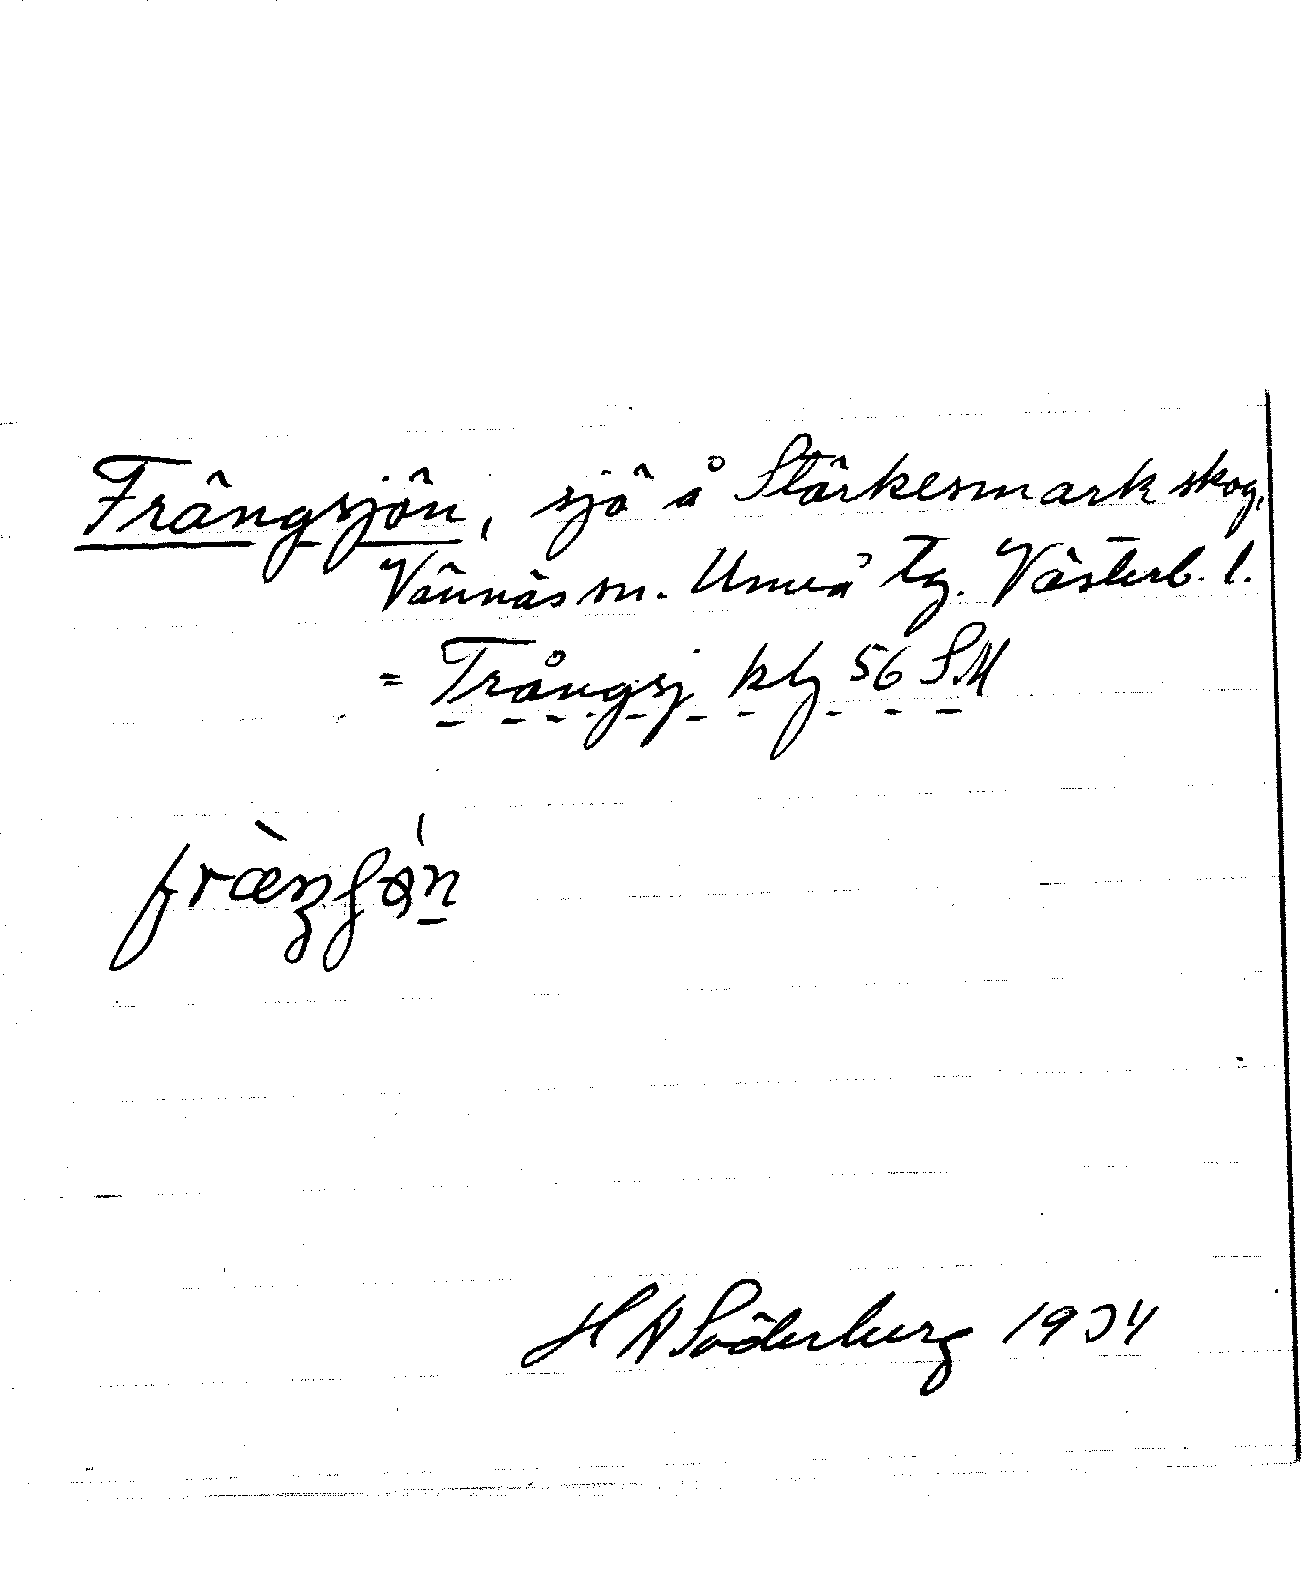 Frängsjön, sjö å Stärkesmark skog,
Vännäs sn. Umeå tg. Västerb. l.
= Trångsj kbl 56 SM
fræ̀ŋʃǿn
H A Söderberg 1934